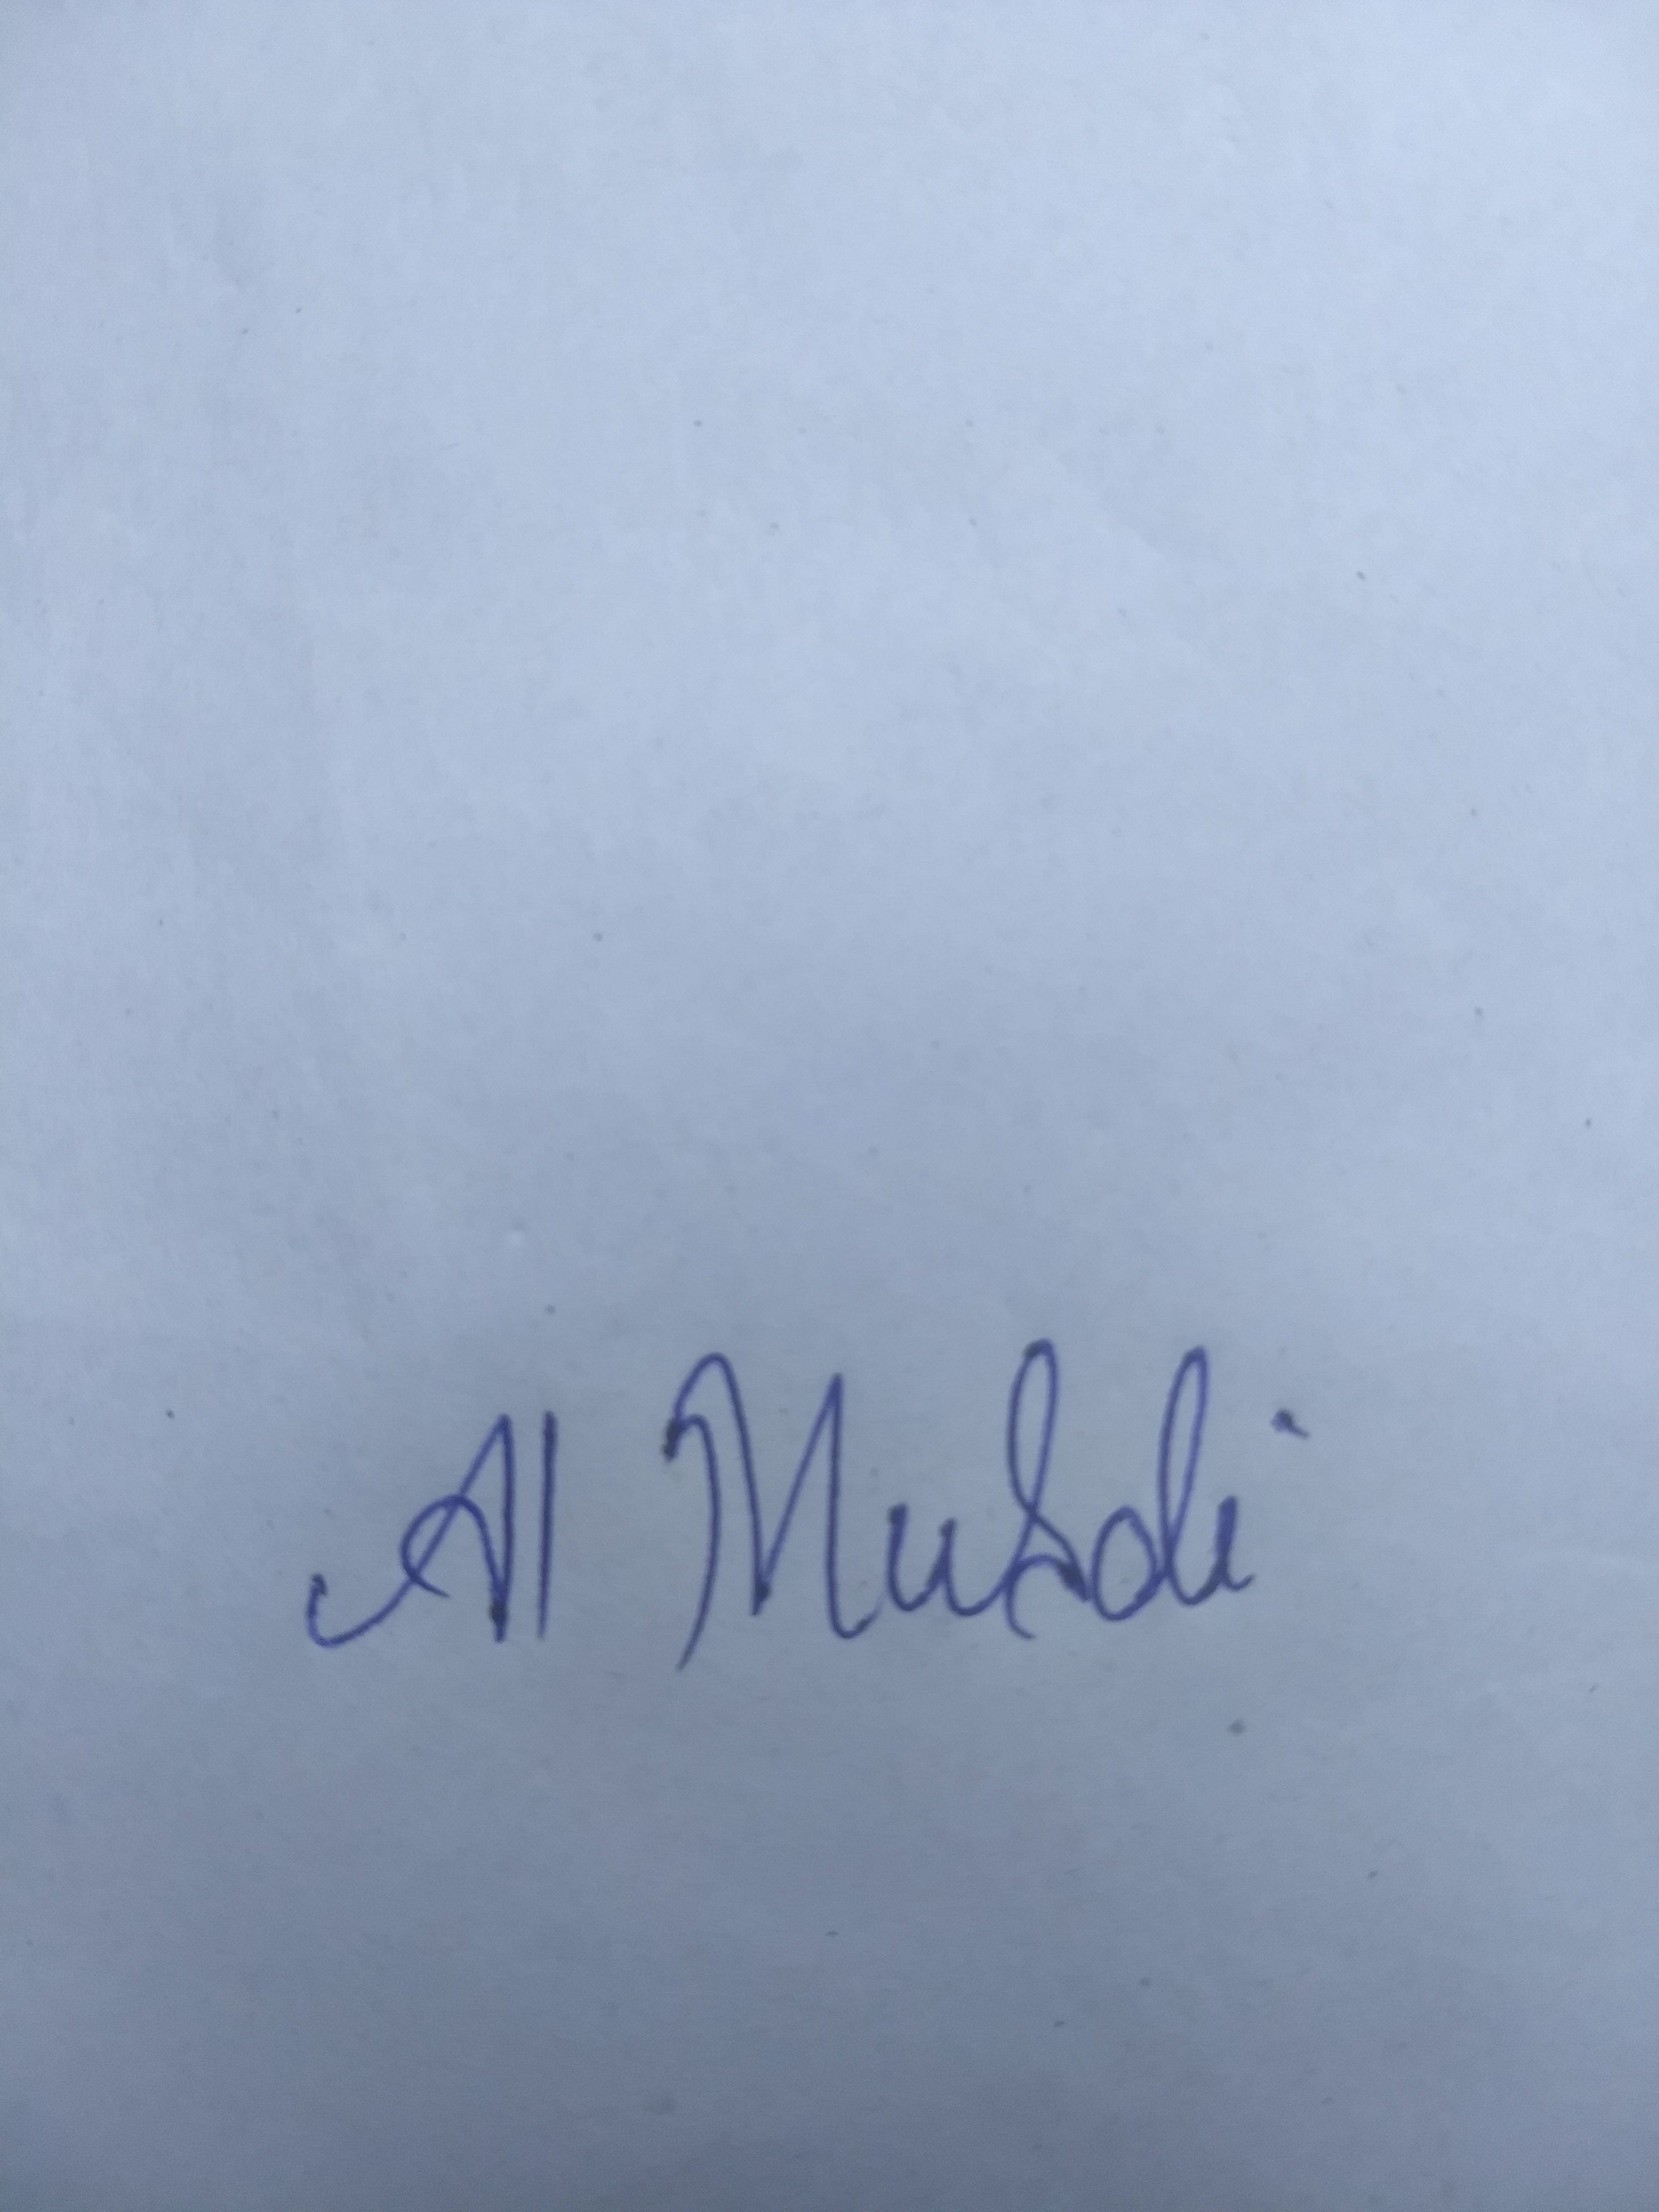 Al Muhdi